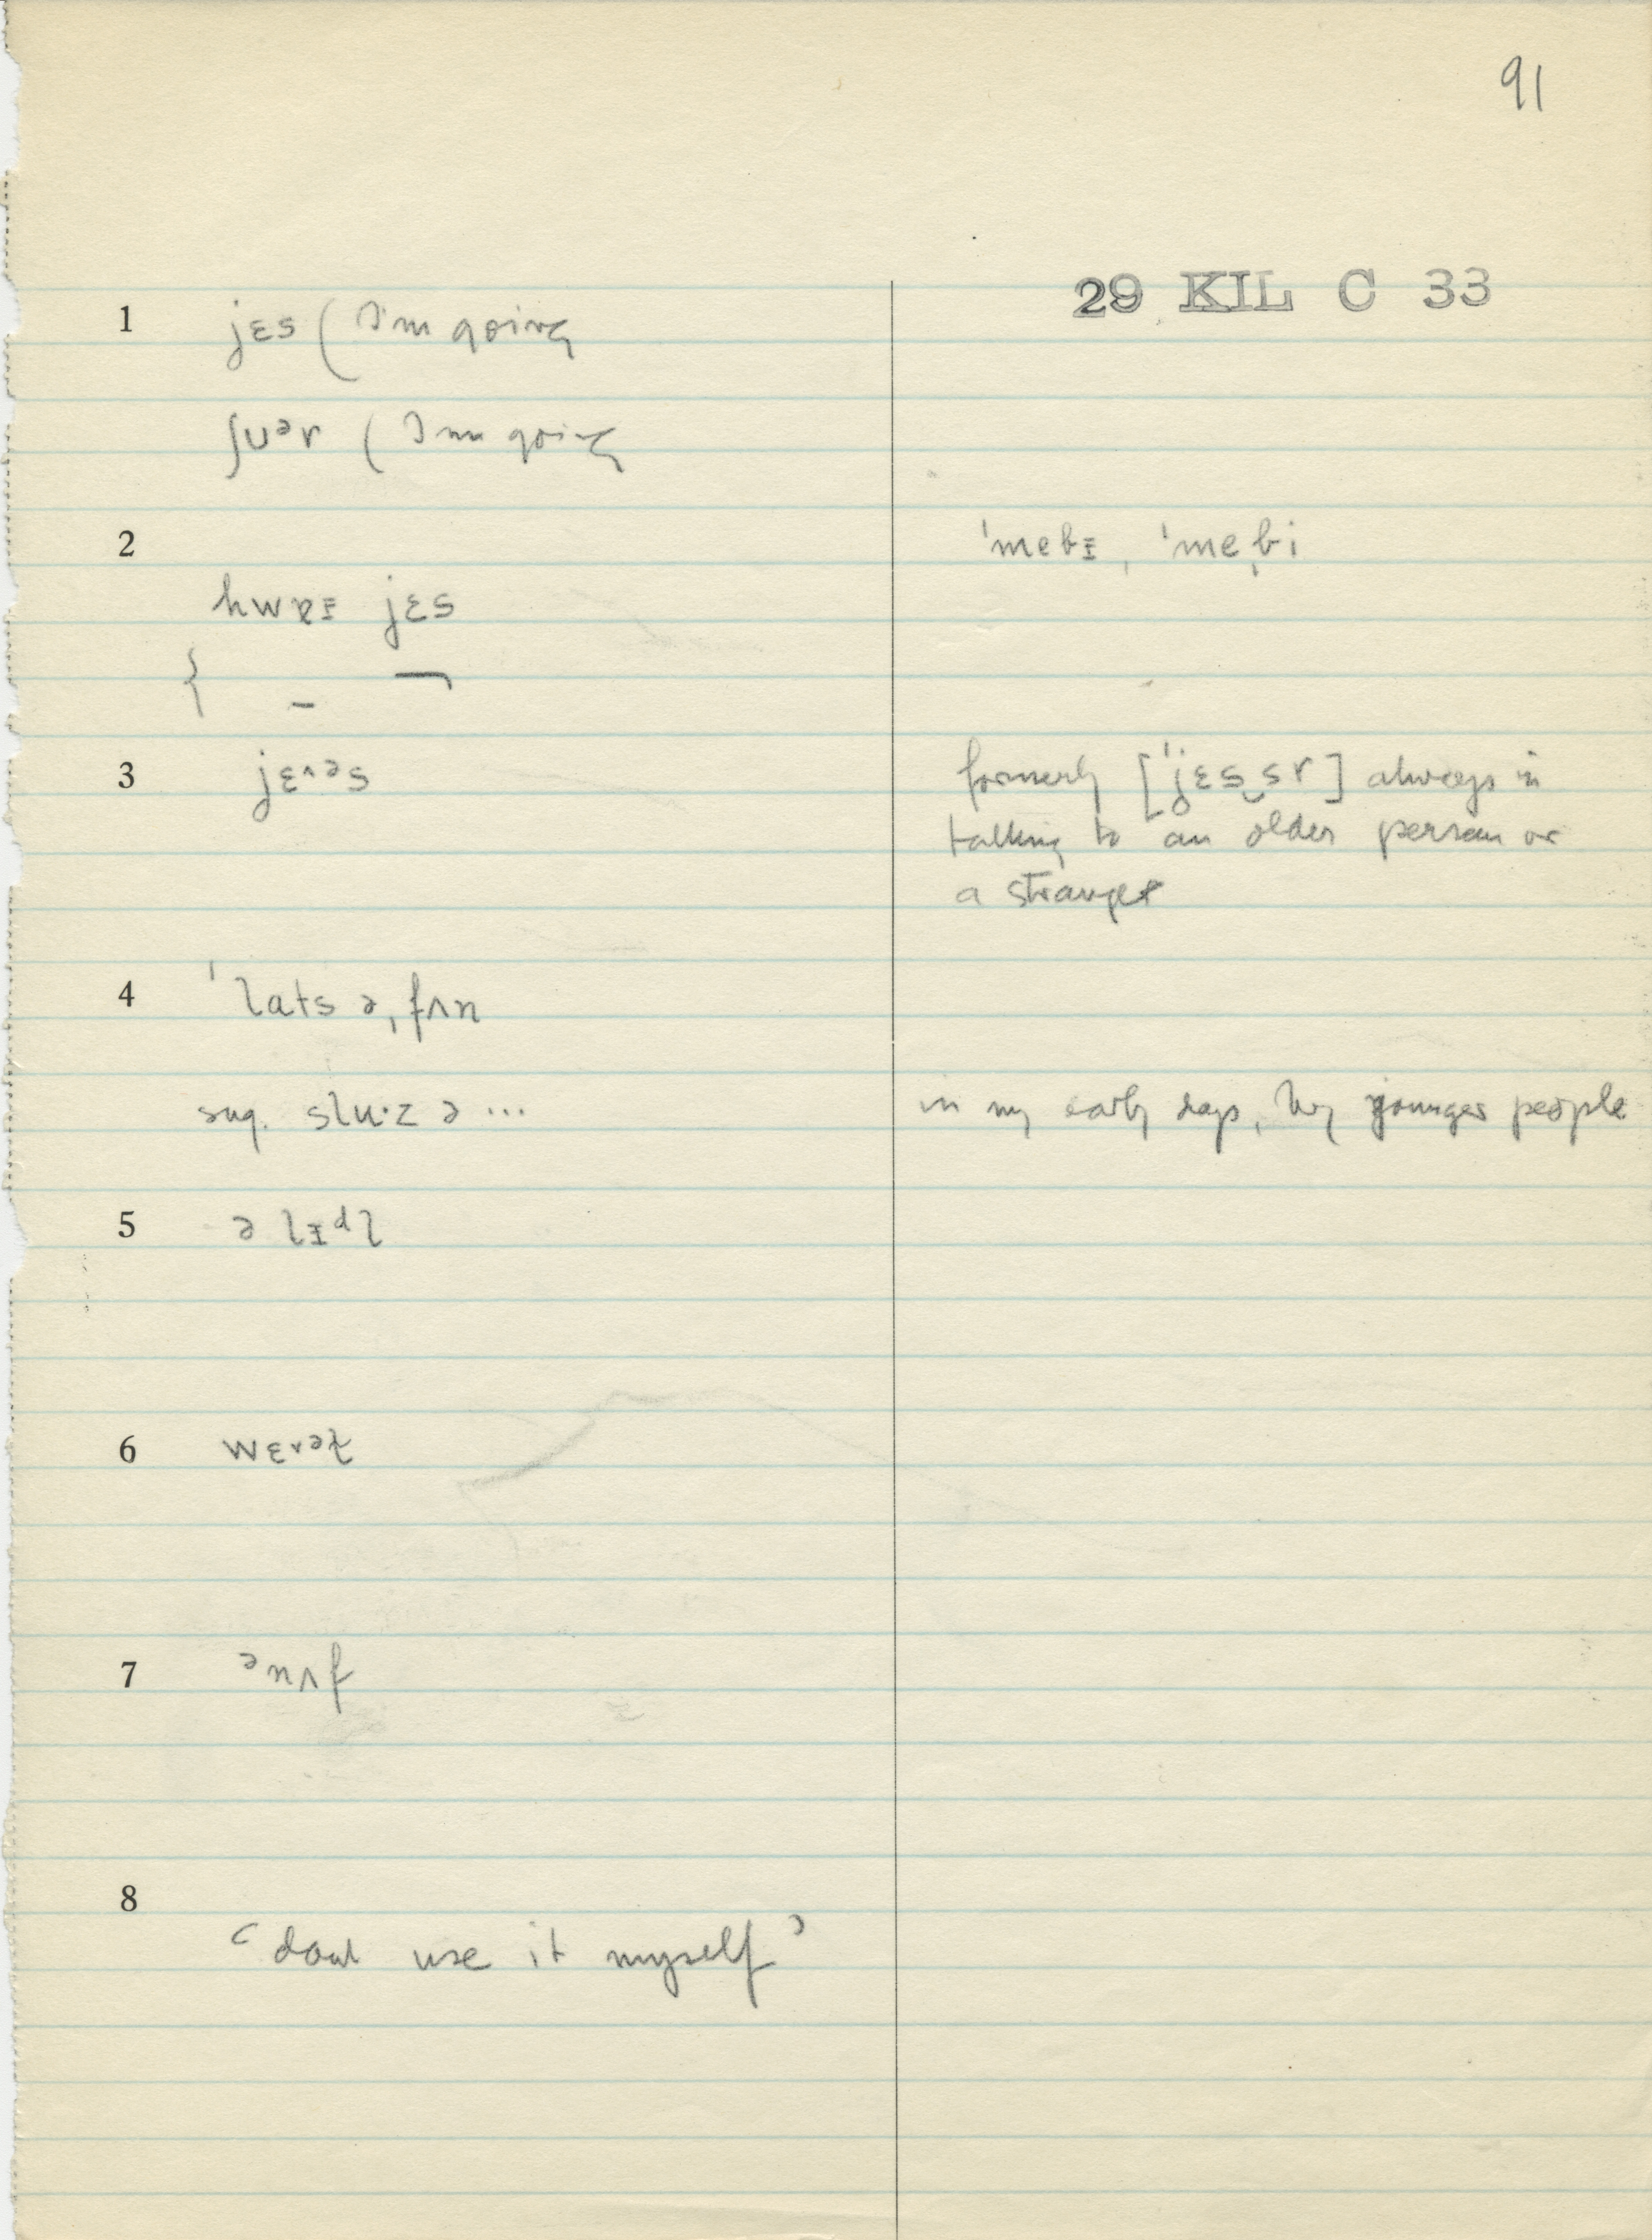 91
29 KIL C 33
1 jɛs ( I'm going
ʃᴜᵊr ( I'm going
2 ˈmebɪ, ˈmebi
jɛs
3 jɛ^əs formerly [ˈjɛs‿sr] always in
talking to an older person or
a stranger
4 ˈlats ə ˌfʌn
sug. slu·z ə ... in my early days, by younger people
5 ə lɪᵈl
6 wɛ^ət
7 ᵊnʌf
8
'don't use it myself'